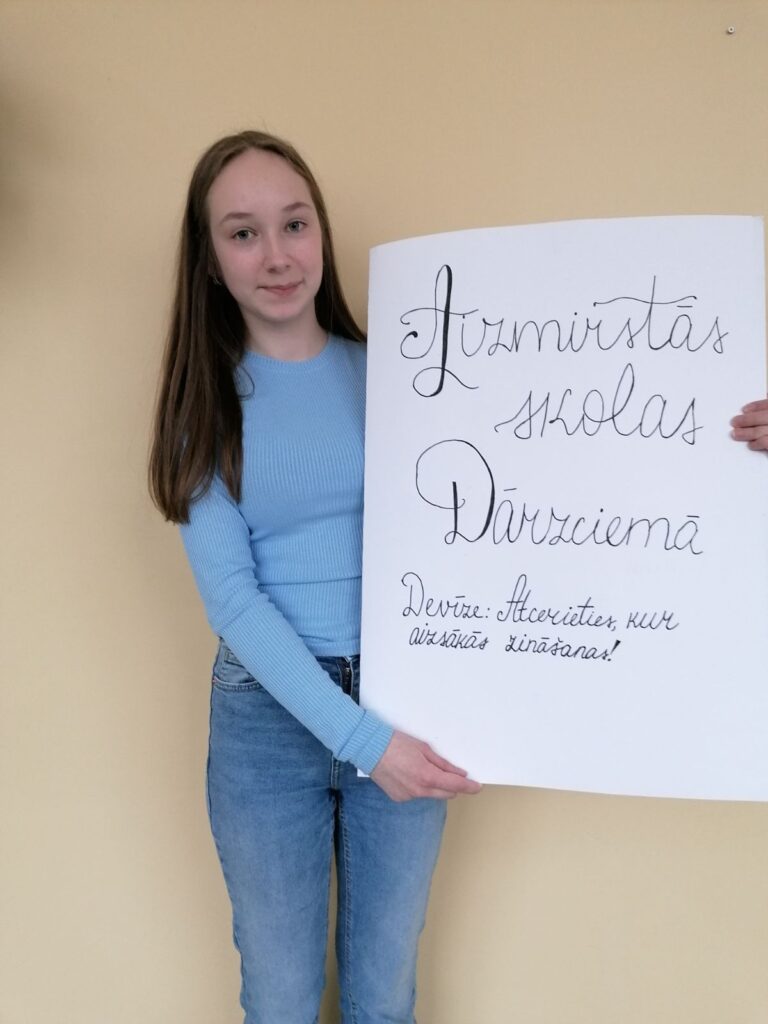 Aizmirstās
skolas
Dārzciemā
Devīze: Atcerieties, kur
aizsākās zināšanas!